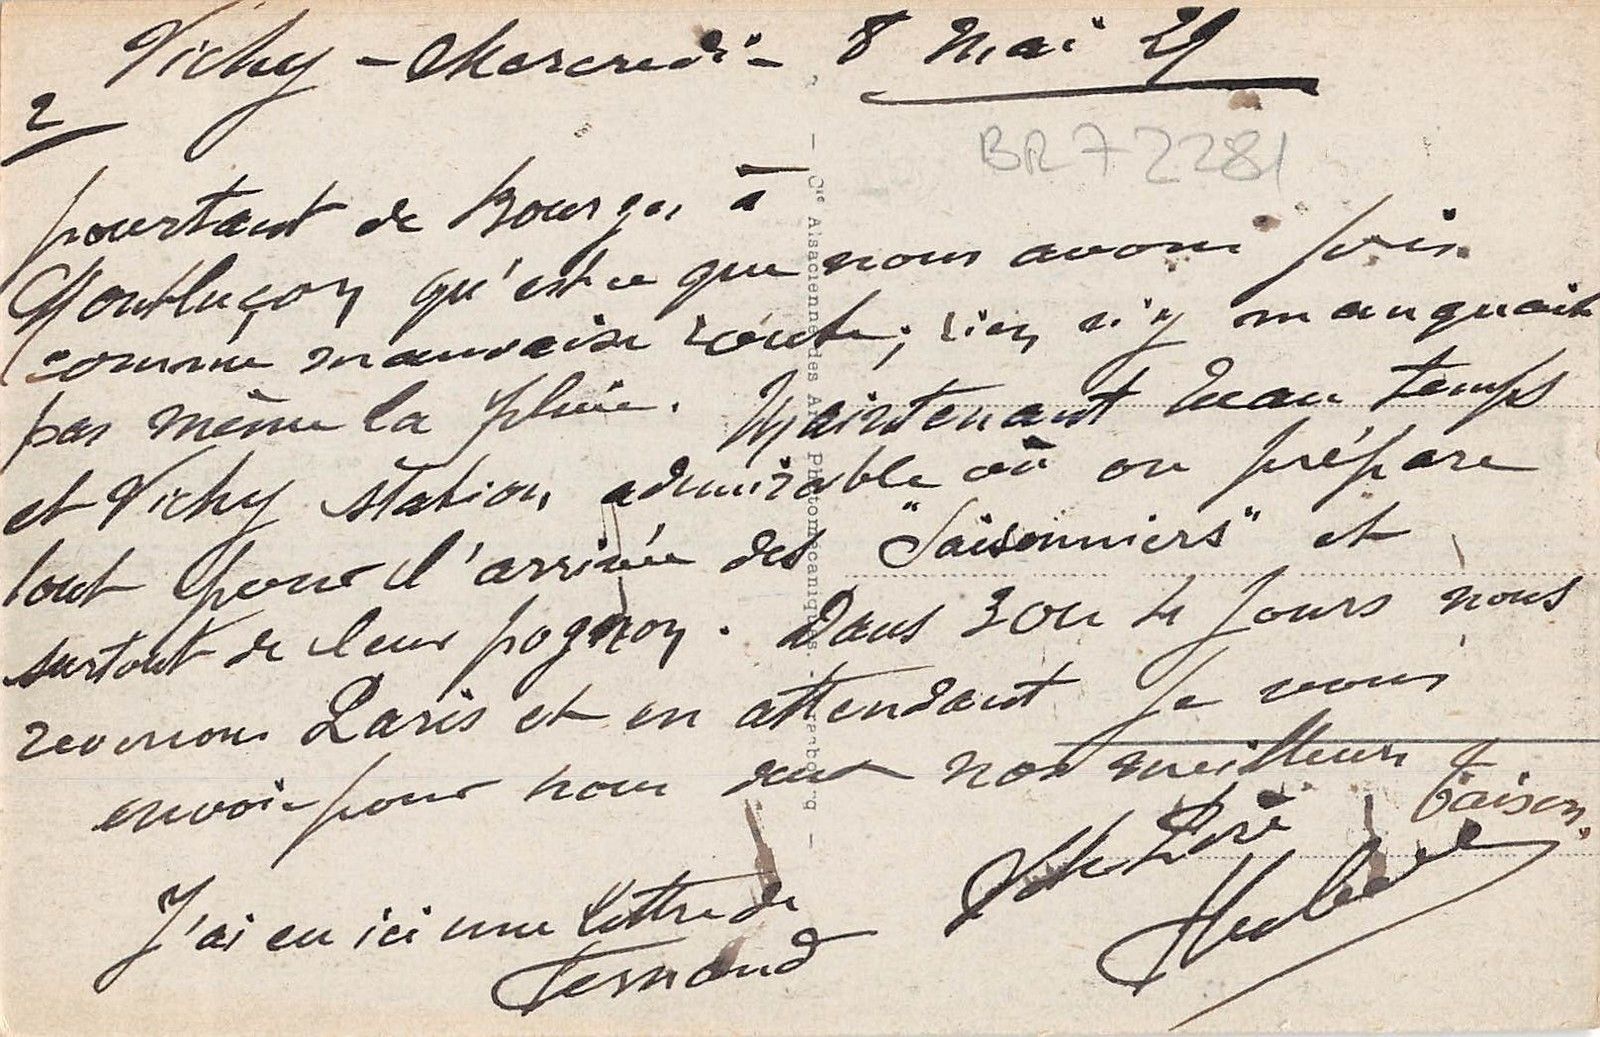 Vichy - Mercredi - 8 Mai 29
2
BR72281
pourtant de Bourges à
Montluçon qu'est ce que nous avons pris
comme mauvaise route; rien n'y manquait
pas même la pluie. Maintenant beau temps
et Vichy station admirable où on prépare
tout pour l'arrivée des "Saisonniers" et
surtout de leur pognon. Dans 3 ou 4 jours nous
revenons Paris et en attendant je vous
envoie pour nous deux nos meilleurs
baisers.
Hubert
J'ai eu ici une lettre de
Fernand
— Cie Alsacienne des Arts Photomécaniques. - Strasbourg —